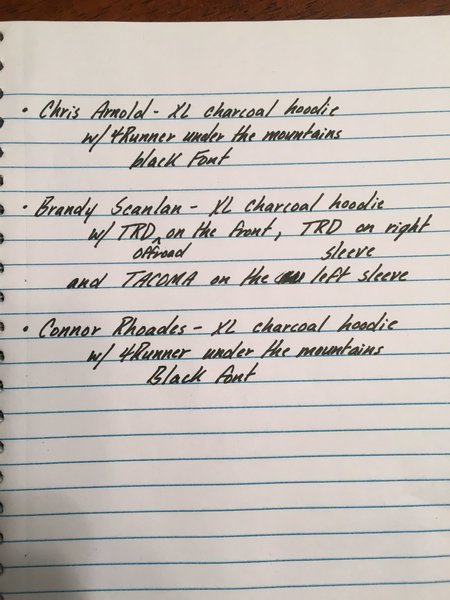 • Chris Arnold - XL charcoal hoodie
w/ 4Runner under the mountains
black Font
• Brandy Scanlan - XL charcoal hoodie
w/ TRD ^ on the front, TRD on right
offroad sleeve
and TACOMA on the left sleeve
• Connor Rhoades - XL charcoal hoodie
w/ 4Runner under the mountains
Black font